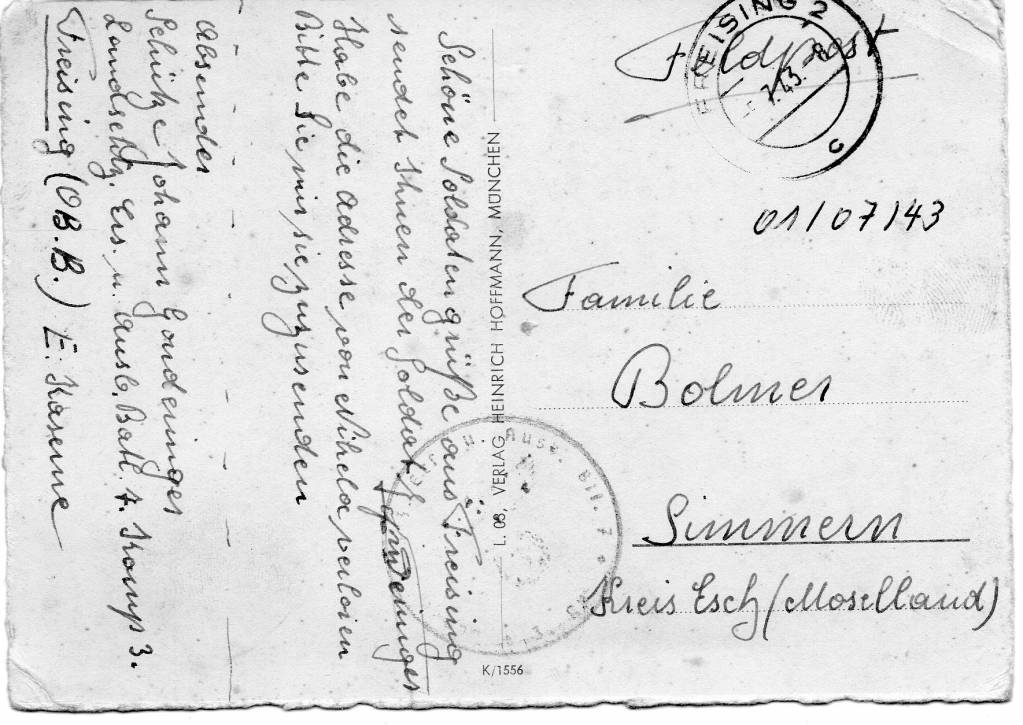 Feldpost
FREISING 2
7.43.
c
01/07/43
Familie
Bolmer
Simmern
Kreis Esch (Moselland)
Schöne Soldatengrüße aus Freising
sendet Ihnen der Soldat J. Gondringer
Habe die Adresse von verloren
Bitte Sie mir sie zuzusenden
Absender
Schütze Johann Gondringer
Landschtz. Ers. u. Ausb. Batl. 7. Komp 3.
Freising (OB.B.) E. Kaserne
L 08, VERLAG HEINRICH HOFFMANN, MÜNCHEN
K/1556
u. Ausb. Btl. 7